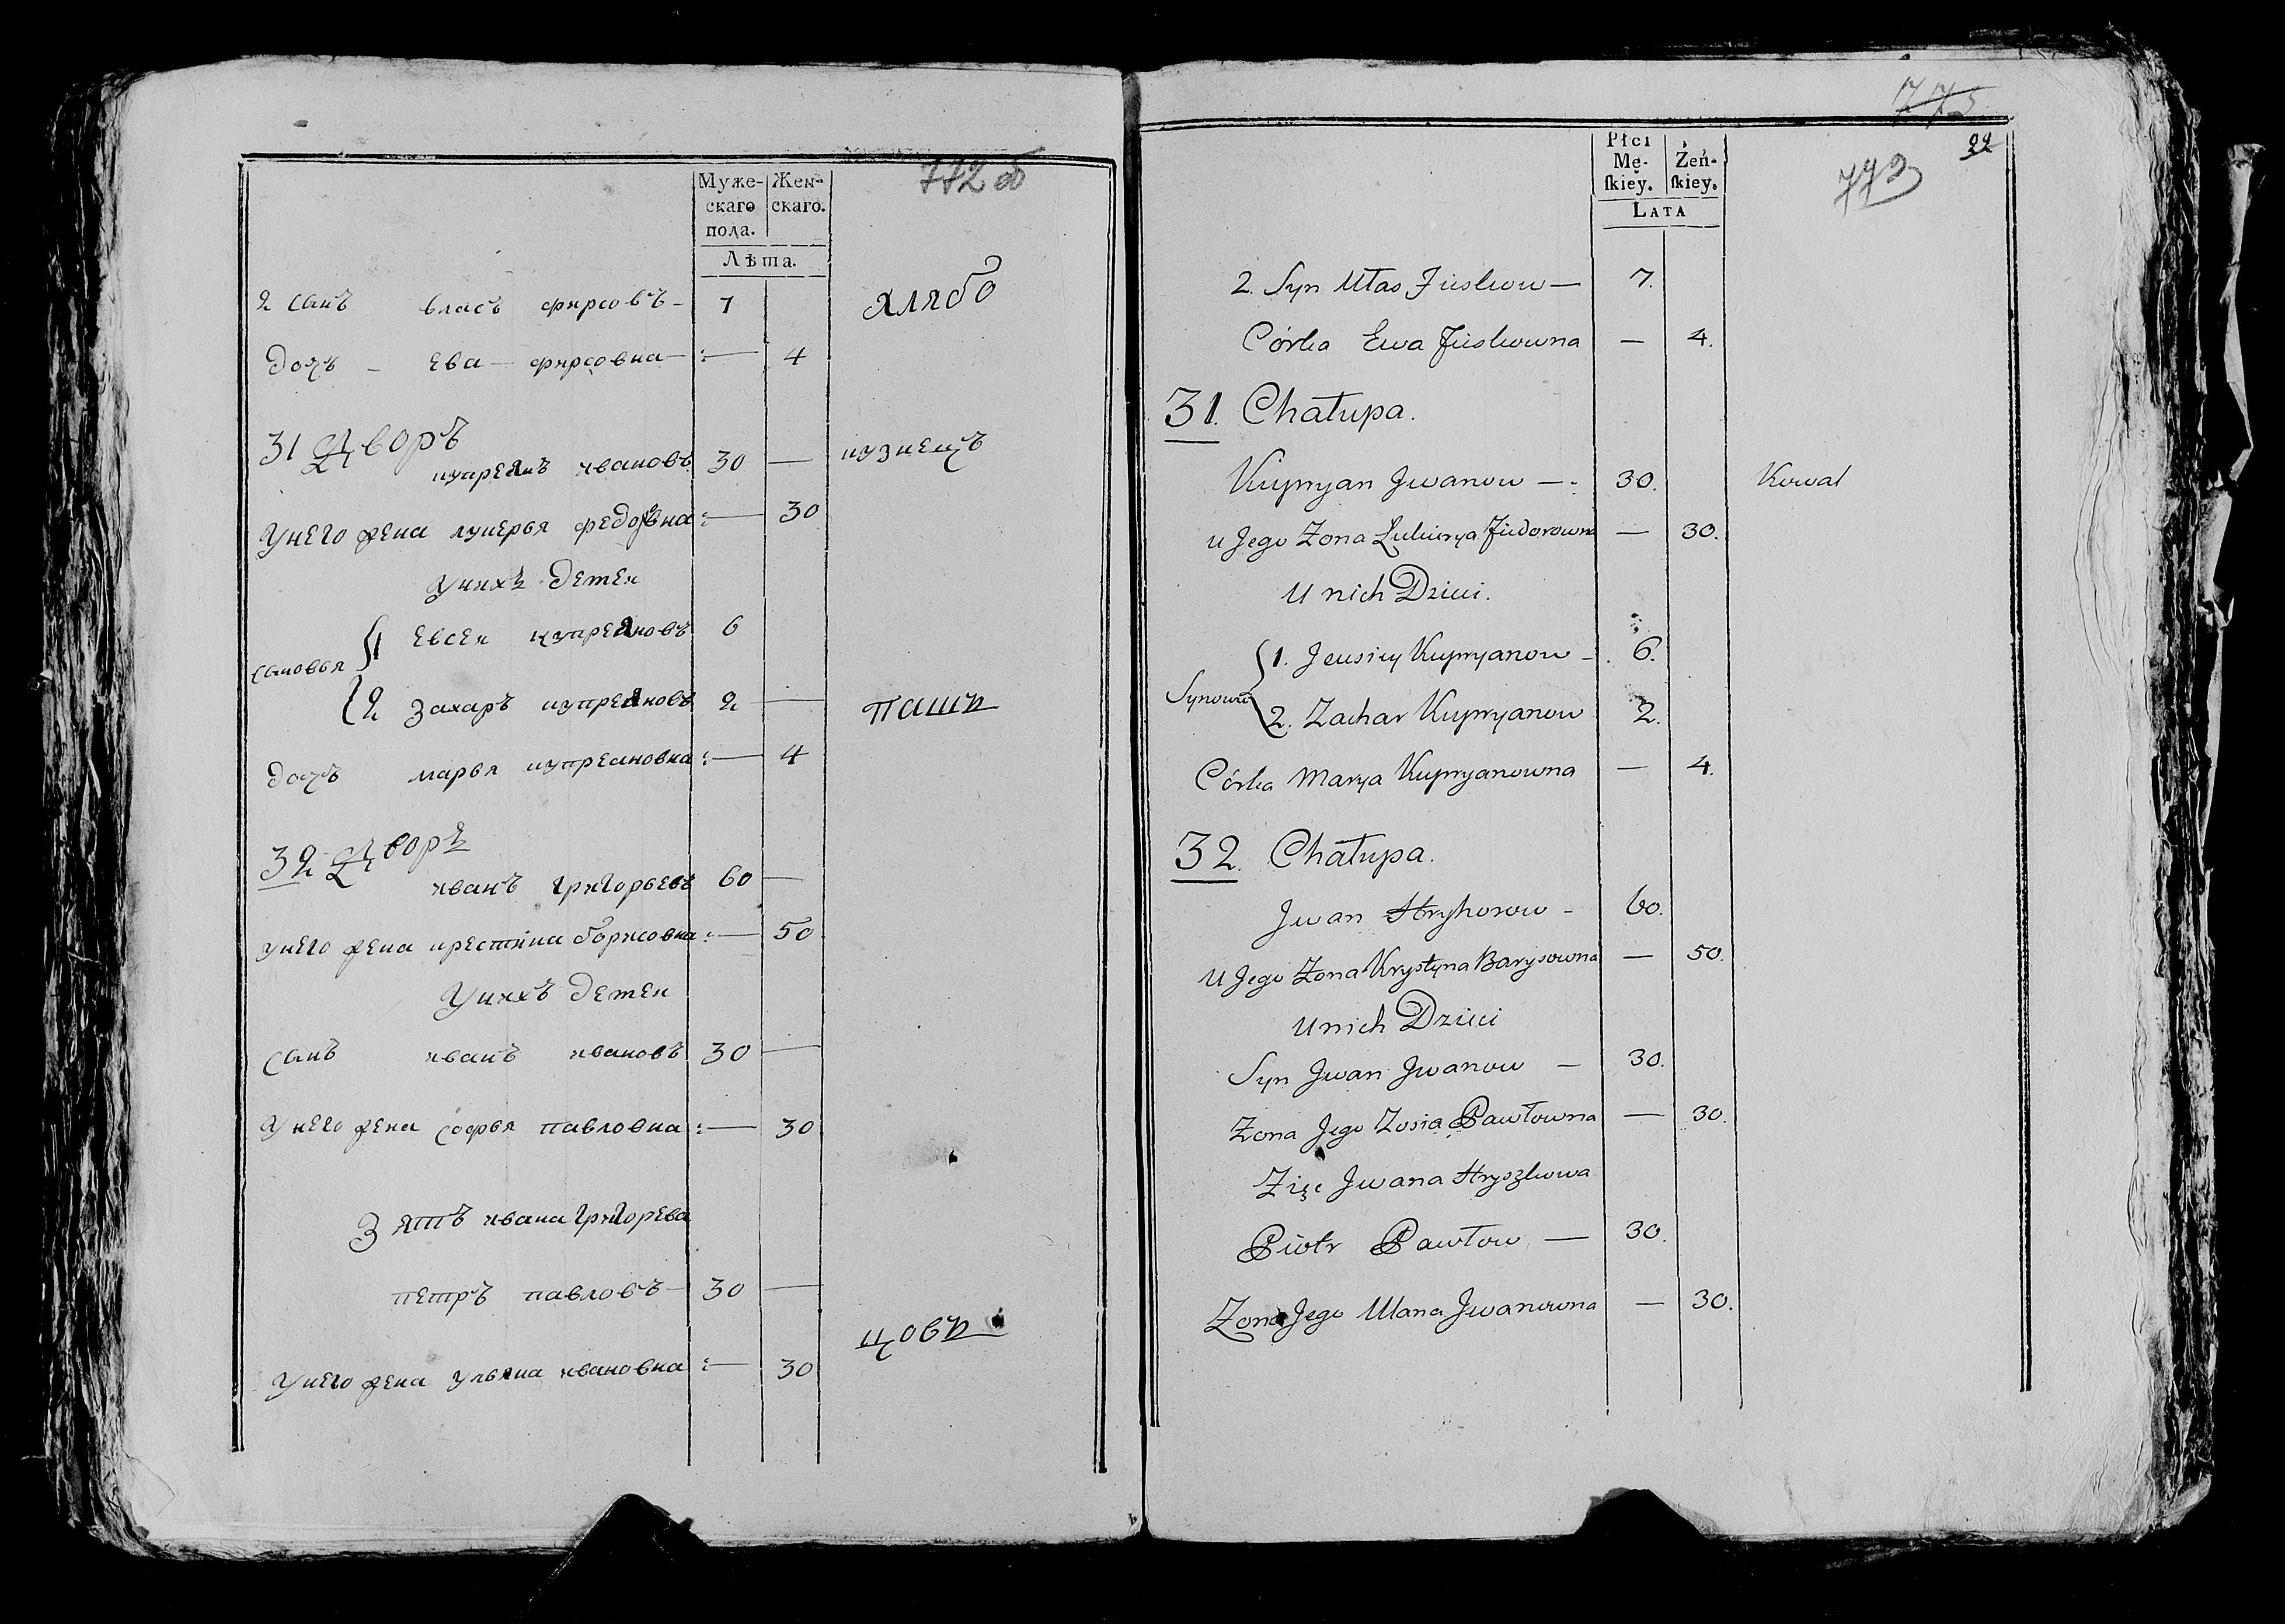 772 об
Муже-
скаго
пола.
Жен-
скаго.
Лѣта.
2 сынъ власъ фирсовъ — 7
хлябо
дочь — ева — фирсовна — :— 4
31 Дворъ
купреянъ ивановъ 30 — кузнецъ
у него жена лукерья федоровна :— 30
у нихъ детеи
сыновья { 1 евсеи купреяновъ 6
{ 2 захаръ купреяновъ 2 —
пашк
дочь марья купреановна :— 4
32 Дворъ
иванъ григорьевъ 60 —
у него жена крестина борисовна :— 50
у нихъ детеи
сынъ иванъ ивановъ 30 —
у него жена софья павловна :— 30
зятъ ивана григорева
петръ павловъ — 30 —
цовк
у него жена ульяна ивановна :— 30
775
22
773
Płci
Mę-
skiey.
Żeń-
skiey.
LATA
2. Syn Ułas Jieskow — 7.
Córka Ewa Jieskowna — 4.
31. Chałupa.
Kupryan Jwanow — 30. Kowal
u Jego Zona Łukierya Fiedorowna — 30.
U nich Dzieci.
Synowie { 1. Jeusiey Kupryanow — 6.
{ 2. Zachar Kupryanow 2.
Córka Marya Kupryanowna — 4.
32. Chałupa.
Jwan Hryhorow — 60.
U Jego Zona Krystyna Barysowna — 50.
U nich Dzieci
Syn Jwan Jwanow — 30.
Zona Jego Zosia Pawłowna — 30.
Zięc Jwana Hryszkowa
Piotr Pawłow — 30.
Zona Jego Ulana Jwanowna — 30.